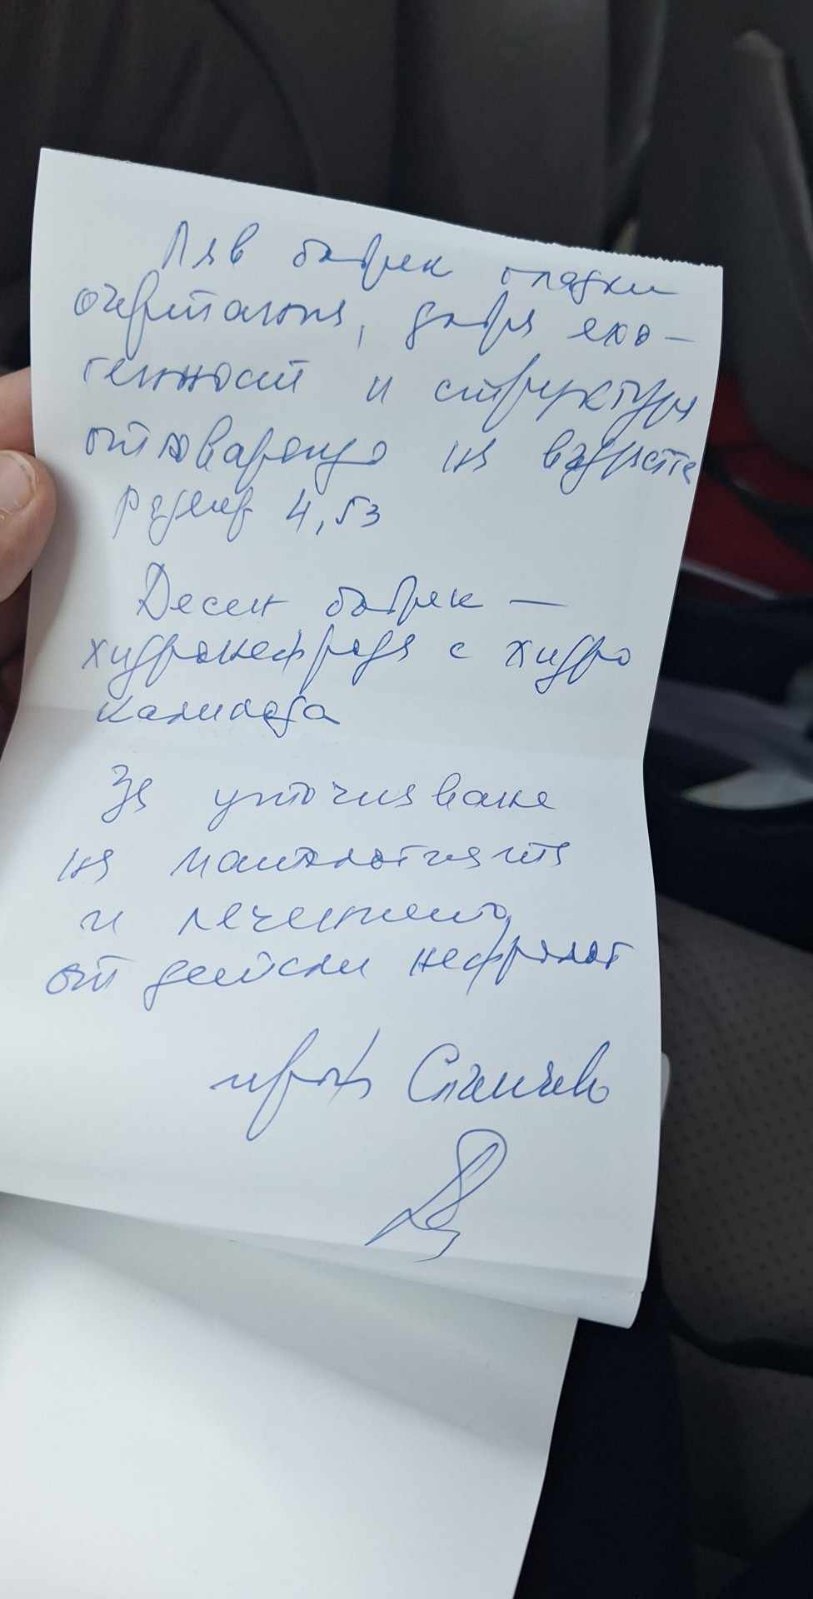 Ляв бъбрек гладки
очертания, добра ехо-
генност и структура
отговарящо на възрастта
размер 4,53
Десен бъбрек —
хидронефроза с хидро
каликоза
За уточняване
на патологията
и лечението
от детски нефролог
проф